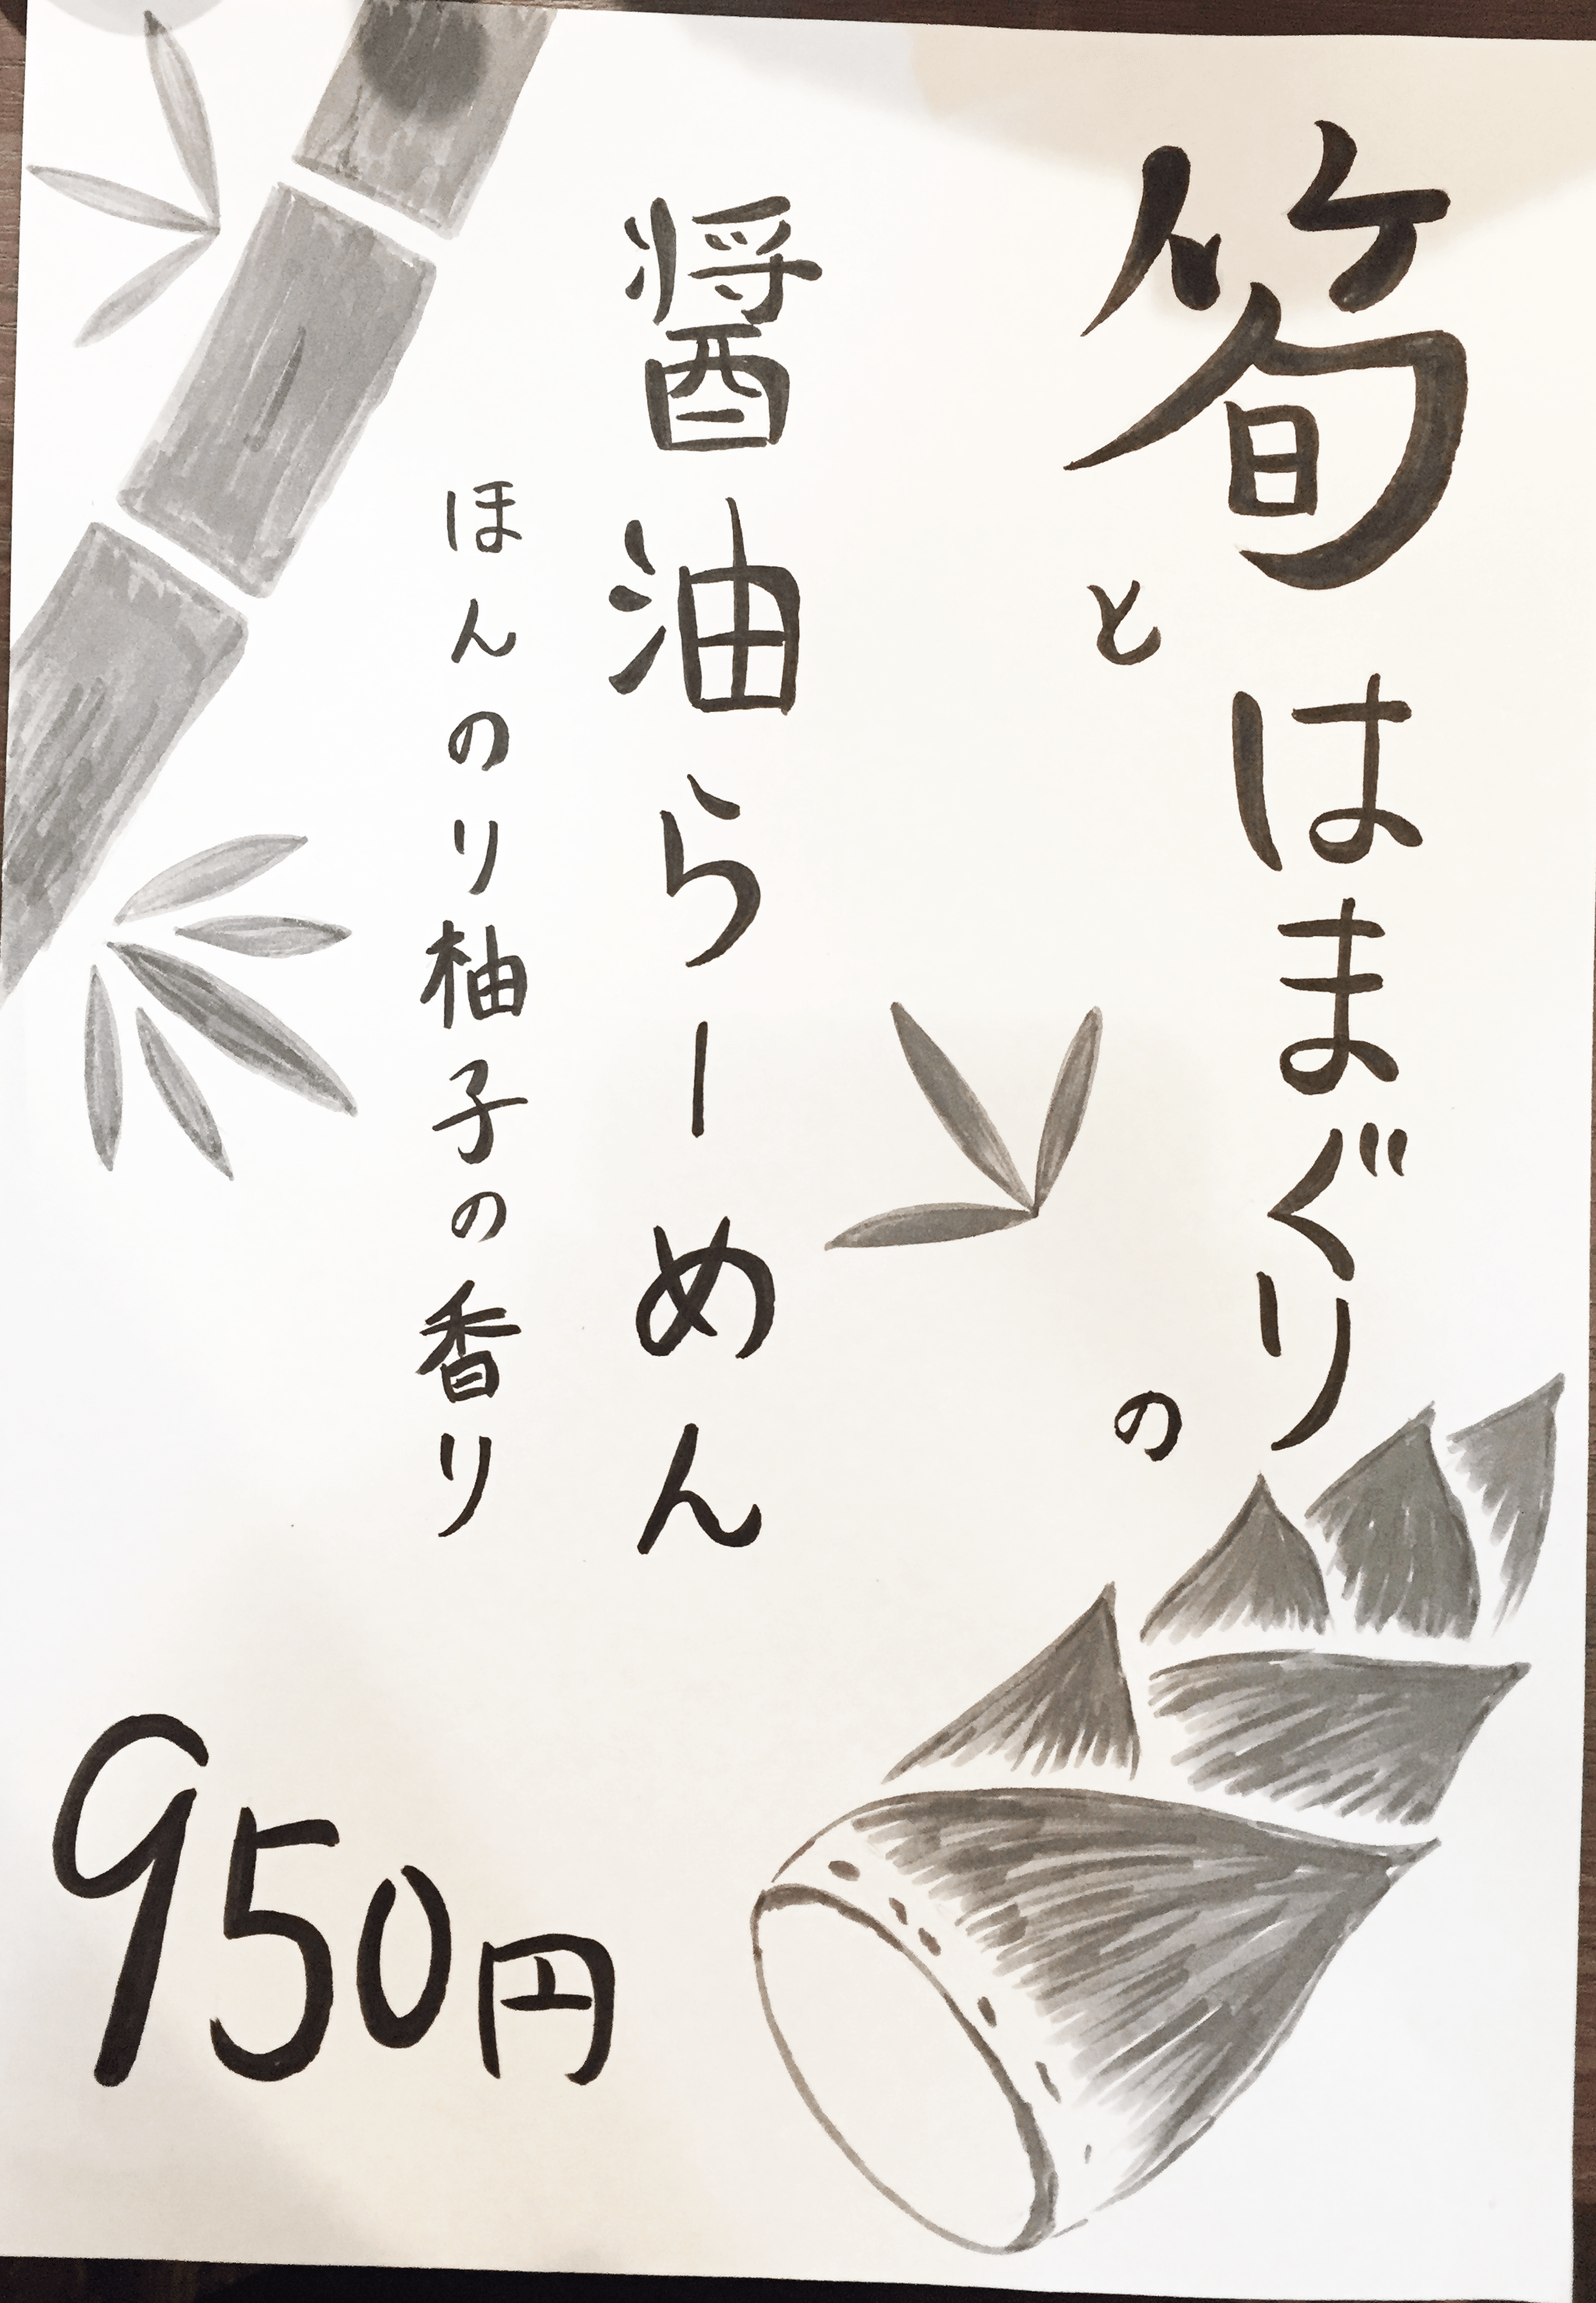 筍とはまぐりの
醤油らーめん
ほんのり柚子の香り
950円